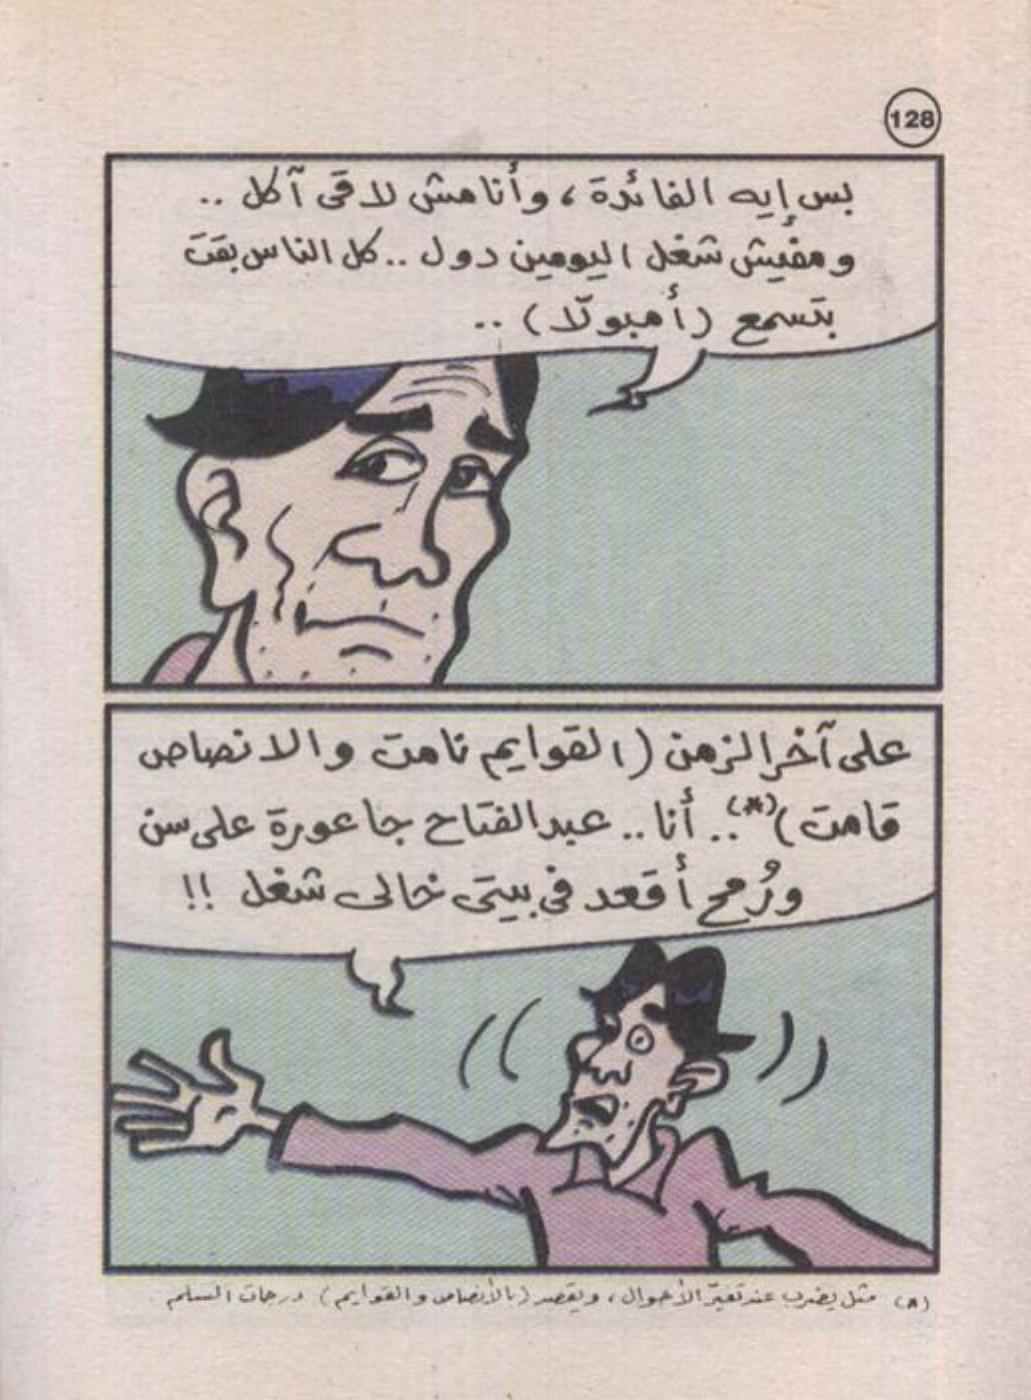 128
بس إيه الفائدة، وأنا مش لاقى آكل ..
ومفيش شغل اليومين دول .. كل الناس بقت
بتسمع (أمبولّا) ..
على آخر الزمن (القوايم نامت والانصاص
قامت)(*).. أنا .. عبد الفتاح جاعورة على سن
ورُمح أقعد فى بيتى خالى شغل !!
(*) مثل يضرب عند تغيّر الأحوال، ويقصد (بالأنصاص والقوايم) درجات السلم.